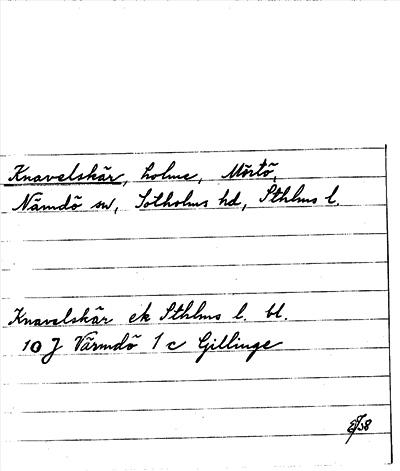 Knavelskär, holme, Mörtö,
Nämdö sn, Sotholms hd, Sthlms l.
Knavelskär ek Sthlms l. bl.
10 J Värmdö 1 c Gillinge